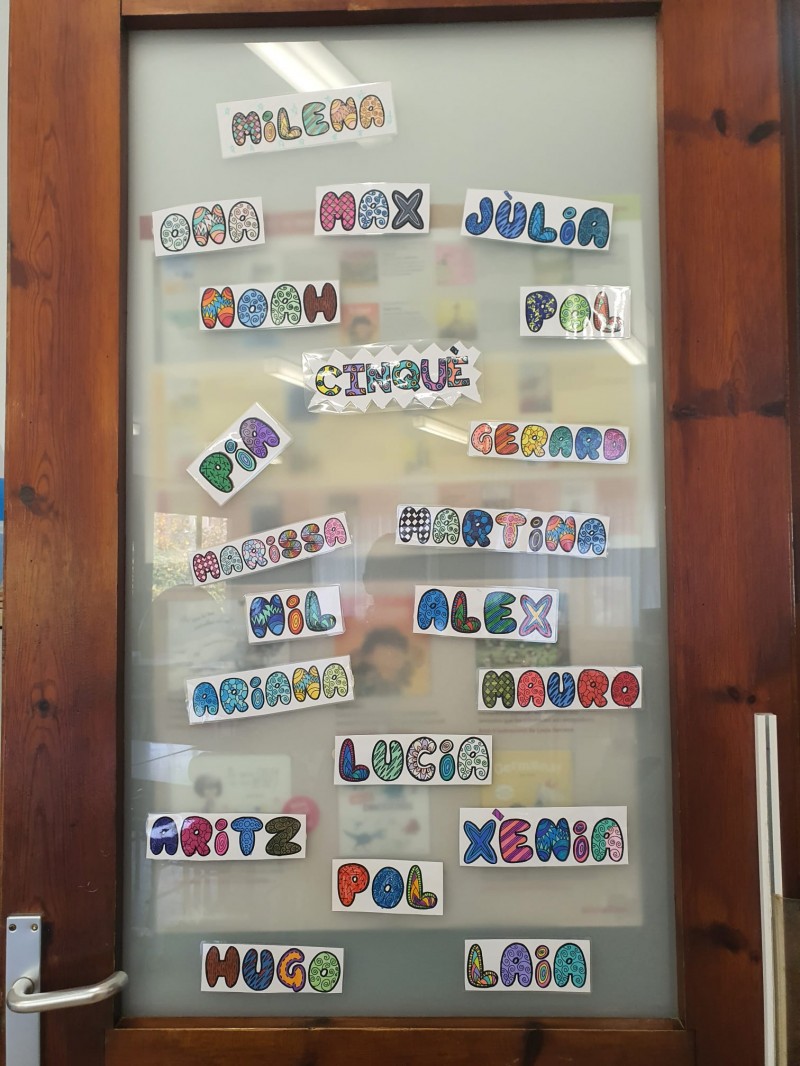 MiLENA
ONA
MAX
JÙLiA
NOAH
POL
CINQUÈ
PiA
GERARD
MARiSSA
MARTiNA
NiL
ALEX
ARiANA
MAURO
LUCiA
ARiTZ
XÈNiA
POL
HUGO
LAiA